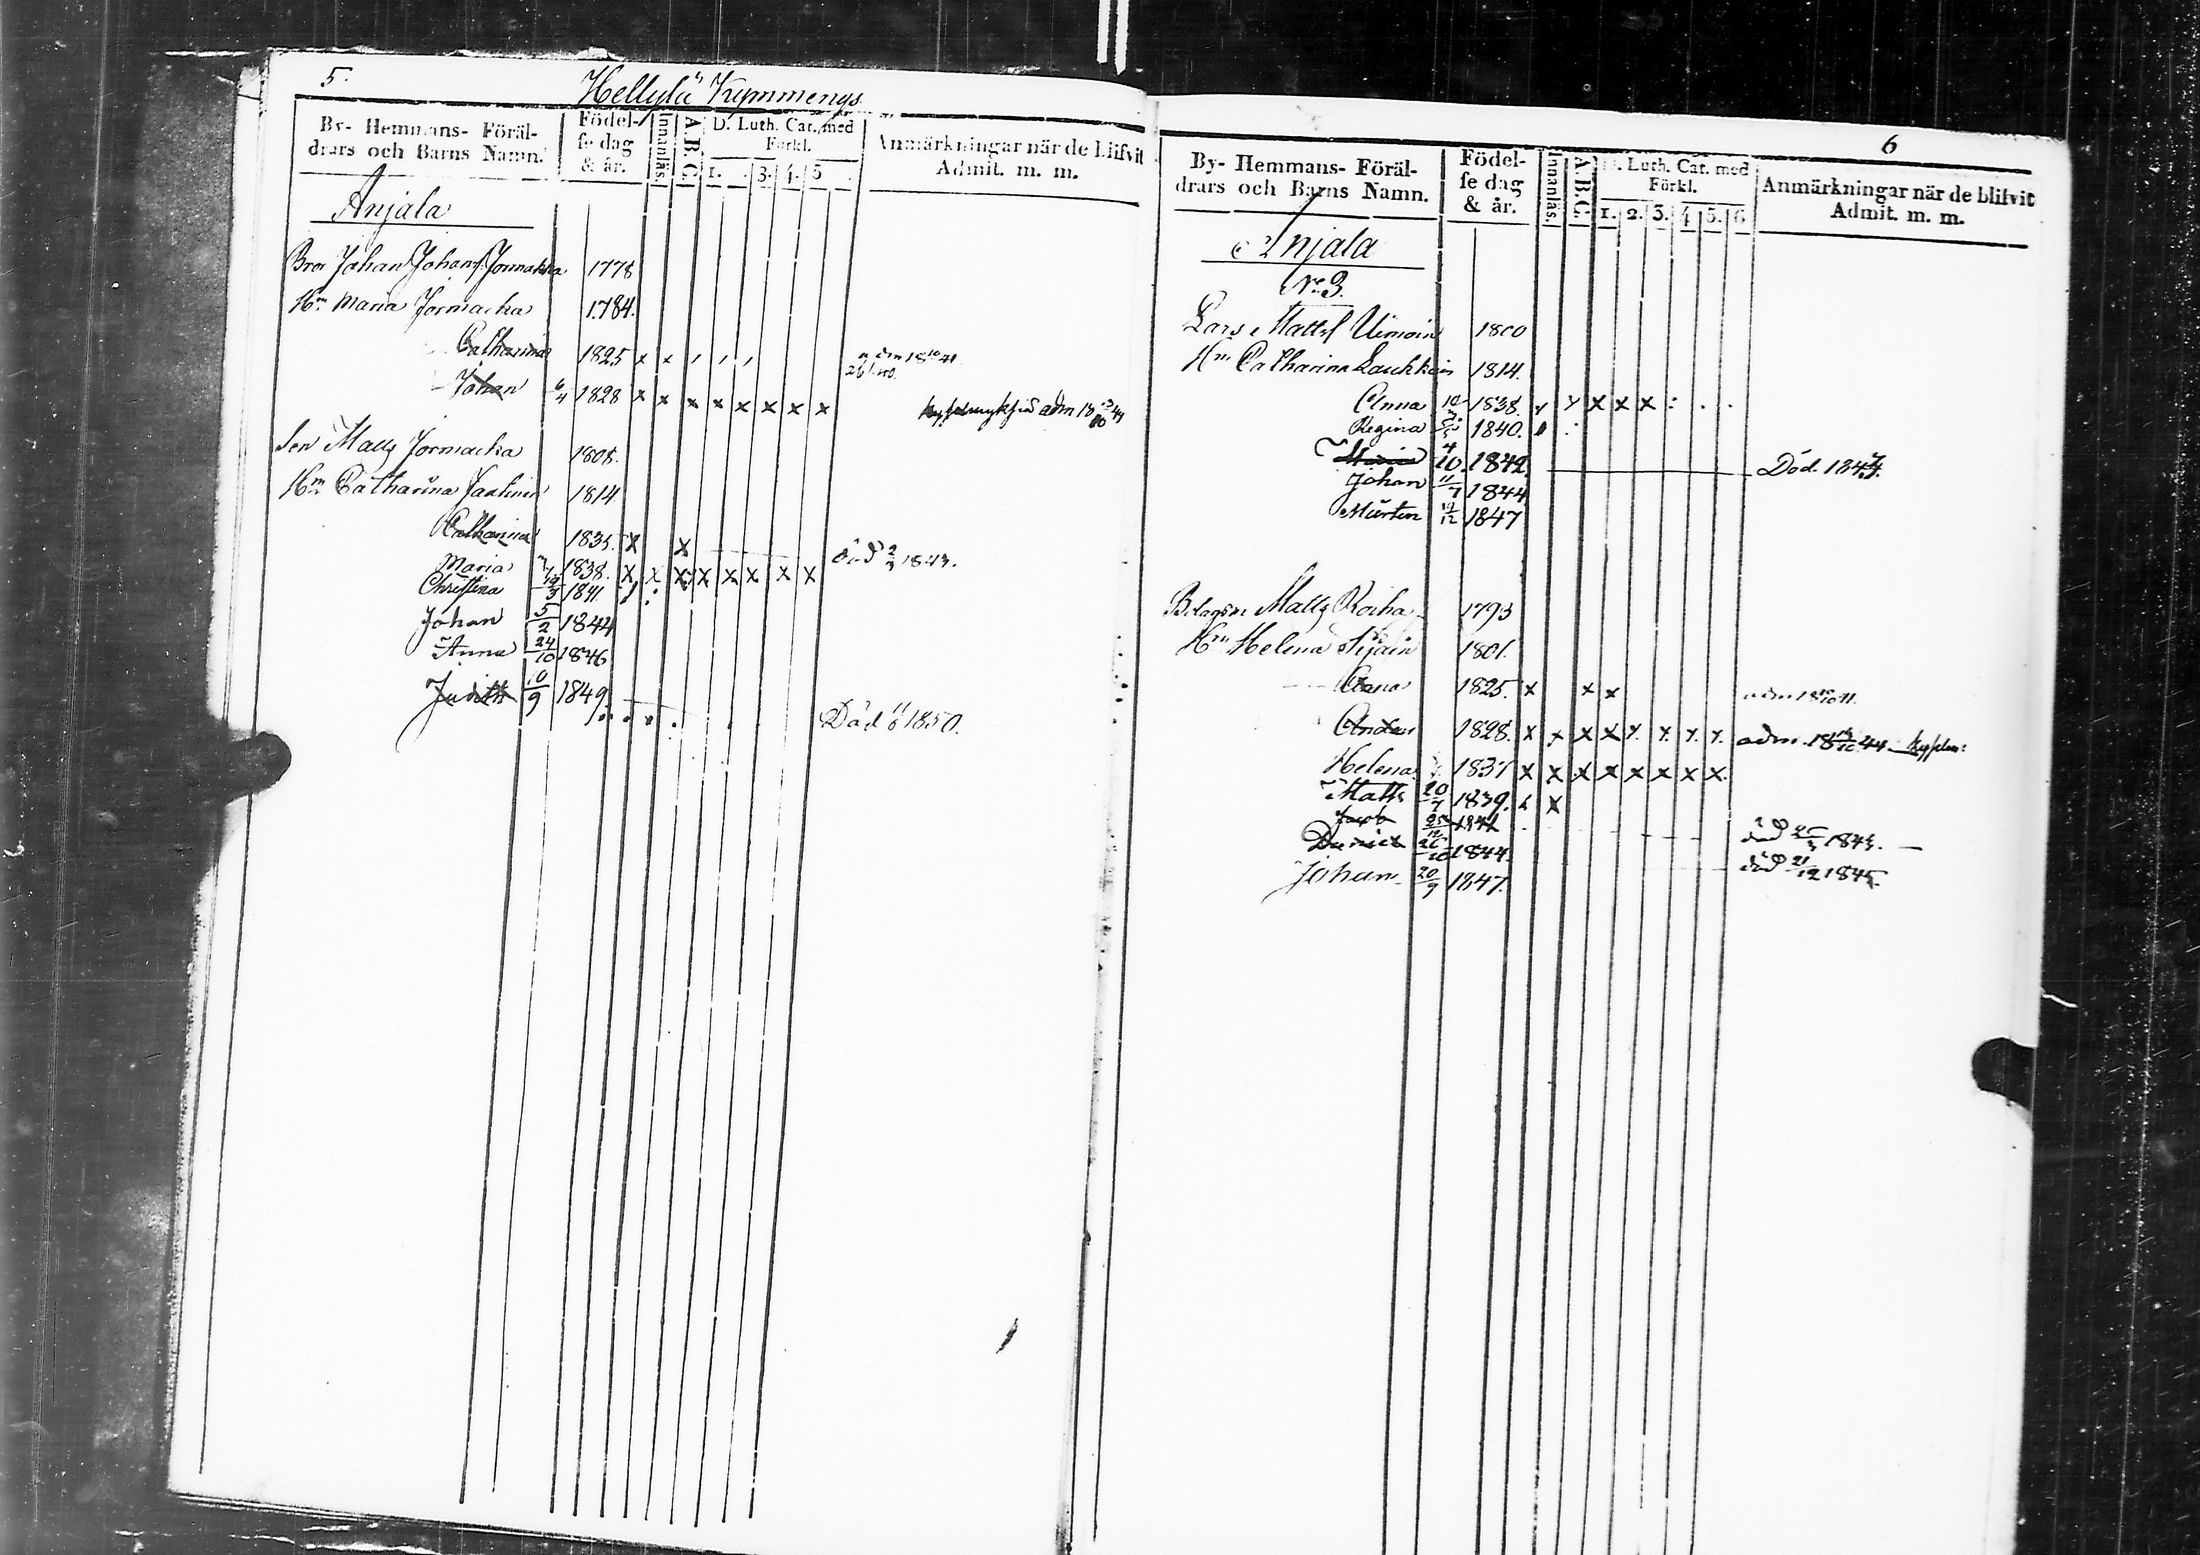 5.
Hellylä Kymmenegs
By- Hemmans- Föräl-
drars och Barns Namn.
Födel-
se dag
& år.
Innanläs.
A.B.C.
D. Luth. Cat. med
Förkl.
1. 3. 4. 5
Anmärkningar när de blifvit
Admit. m. m.
Anjala
Bror Johan Johans. Jormakka 1778
Hm Maria Jormacka 1784.
Catharina 1825 x x
Johan 6/4 1828 x x x x x x x x
Son Matts Jormacka 1808.
Hm Catharina 1814
Catharina 1835. x x död 2/3 1843.
Maria 1838. x x x x x x x x
Christina 1841.
Johan 5/2 1844
Anna 24/10 1846
Judith 10/9 1849 Död 1850.
6
By- Hemmans- Föräl-
drars och Barns Namn.
Födel-
se dag
& år.
Innanläs.
A.B.C.
D. Luth. Cat. med
Förkl.
1. 2. 3. 4 5. 6
Anmärkningar när de blifvit
Admit. m. m.
Anjala
No 3.
Lars Matts Uimoin 1800
Hm Catharina Laukkain 1814.
Anna 1838. x x x
Regina 1840.
Maria 4/10 1842 Död. 1844.
Johan 11/7 1844
Mårten 1847
Bolagsm Matts Roiha 1793
Hm Helena Sijäin 1801.
Anna 1825. x x x
Anders 1828. x x x x x x x x
Helena 1837 x x x x x x x x
Matts 20/7 1839. x x
Jacob 1842 död 1843.
Daniel 26/10 1844. död 21/12 1845.
Johan 20/9 1847.